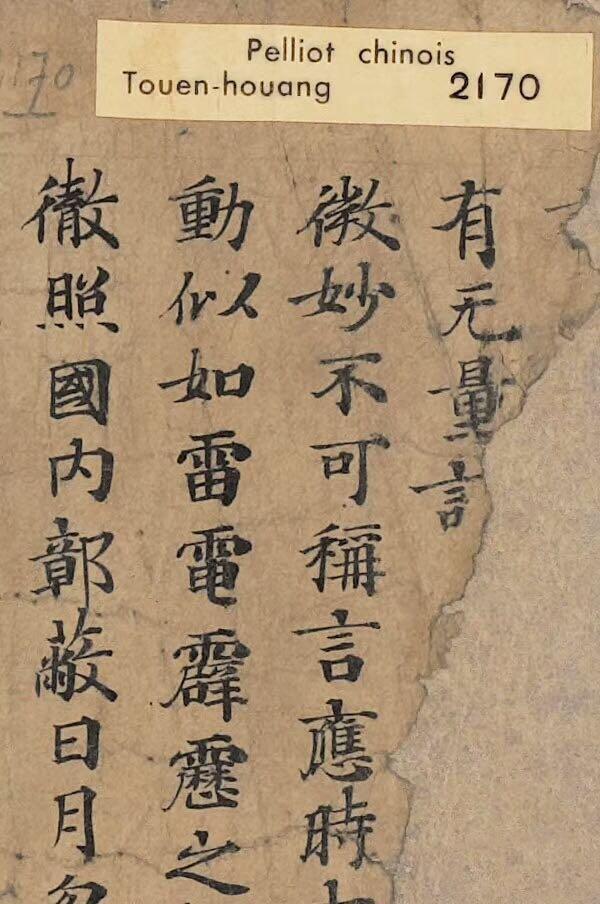 Pelliot chinois
Touen-houang 2170
170
有无量言
微妙不可稱言應時
動似如雷電霹靂之
徹照國内鄣蔽日月忽